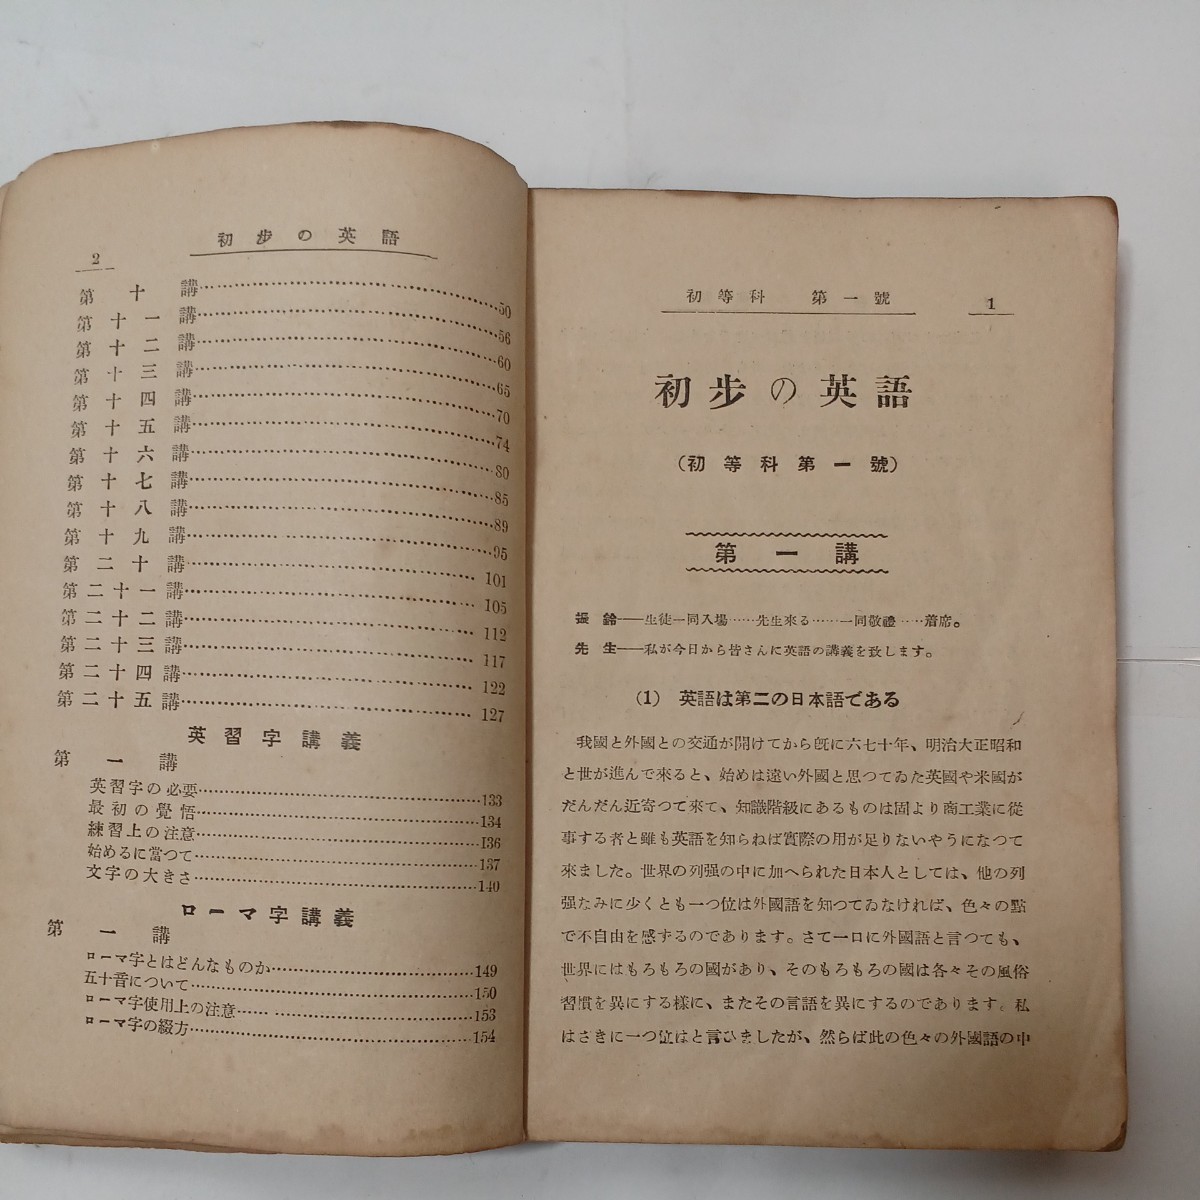 2
初歩の英語
第十講……50
第十一講……56
第十二講……60
第十三講……65
第十四講……70
第十五講……74
第十六講……80
第十七講……85
第十八講……89
第十九講……95
第二十講……101
第二十一講……105
第二十二講……112
第二十三講……117
第二十四講……122
第二十五講……127
英習字講義
第一講
英習字の必要……133
最初の覺悟……134
練習上の注意……136
始めるに當つて……137
文字の大きさ……140
ローマ字講義
第一講
ローマ字とはどんなものか……149
五十音について……150
ローマ字使用上の注意……153
ローマ字の綴方……154
初等科 第一號 1
初步の英語
(初等科第一號)
第一講
振鈴——生徒一同入場……先生來る……一同敬禮……着席。
先生——私が今日から皆さんに英語の講義を致します。
(1) 英語は第二の日本語である
我國と外國との交通が開けてから旣に六七十年、明治大正昭和
と世が進んで來ると、始めは遠い外國と思つてゐた英國や米國が
だんだん近寄つて來て、知識階級にあるものは固より商工業に從
事する者と雖も英語を知らねば實際の用が足りないやうになつて
來ました。世界の列强の中に加へられた日本人としては、他の列
强なみに少くとも一つ位は外國語を知つてゐなければ、色々の點
で不自由を感ずるのであります。さて一口に外國語と言つても、
世界にはもろもろの國があり、そのもろもろの國は各々その風俗
習慣を異にする樣に、またその言語を異にするのであります。私
はさきに一つ位はと言ひましたが、然らば此の色々の外國語の中